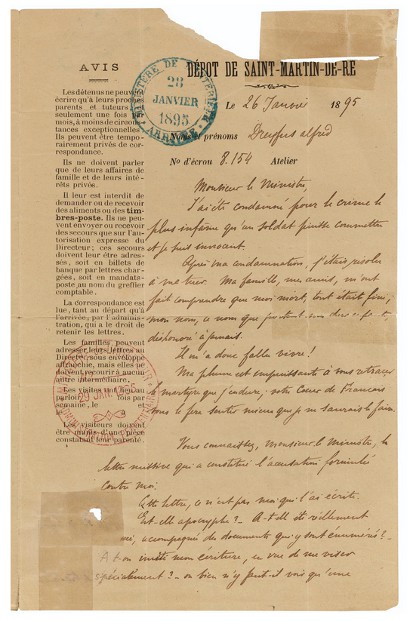 AVIS
Les détenus ne peuvent
écrire qu'à leurs proches
parents et tuteurs
seulement une fois
mois, à moins de circons-
tances exceptionnelles.
Ils peuvent être tempo-
rairement privés de cor-
respondance.
Ils ne doivent parler
que de leurs affaires de
famille et de leurs inté-
rêts privés.
Il leur est interdit de
demander ou de recevoir
des aliments ou des tim-
bres-poste. Ils ne peu-
vent envoyer ou recevoir
des secours que sur l'au-
torisation expresse du
Directeur; ces secours
doivent leur être adres-
sés, soit en billets de
banque par lettres char-
gées, soit en mandats-
poste au nom du greffier
comptable.
La correspondance est
lue, tant au départ qu'à
l'arrivée, par l'adminis-
tration, qui a le droit de
retenir les lettres.
Les familles peuvent
adresser leurs lettres au
Directeur, sous enveloppe
affranchie, mais elles
recourir à aucun
intermédiaire.
Les visites ont lieu au
parloir jours par
semaine, le
Les visiteurs doivent
être munis d'une pièce
constatant leur parenté.
DÉPOT DE SAINT-MARTIN-DE-RÉ
28
JANVIER
1895
Le 26 Janvier 1895
Nom et prénoms Dreyfus Alfred
No d'écrou 8.154 Atelier
Monsieur le Ministre,
J'ai été condamné pour le crime le
plus infâme qu'un soldat puisse commettre
et je suis innocent.
Après ma condamnation, j'étais résolu
à me tuer. Ma famille, mes amis, m'ont
fait comprendre que moi mort, tout était fini,
mon nom, ce nom que portent mes
déshonoré à jamais.
Il m'a donc fallu vivre!
Ma plume est impuissante à vous retracer
le martyre que j'endure, votre Cœur de Français
vous le fera sentir mieux que je ne saurais le faire.
Vous connaissez, monsieur le ministre, la
lettre missive qui a constitué l'accusation formulée
contre moi.
Cette lettre, ce n'est pas moi qui l'ai écrite.
Est-elle apocryphe? — A-t-elle été réellement
accompagnée des documents qui y sont énumérés? —
A-t-on imité mon écriture, en vue de me viser
spécialement? — ou bien n'y faut-il voir qu'une